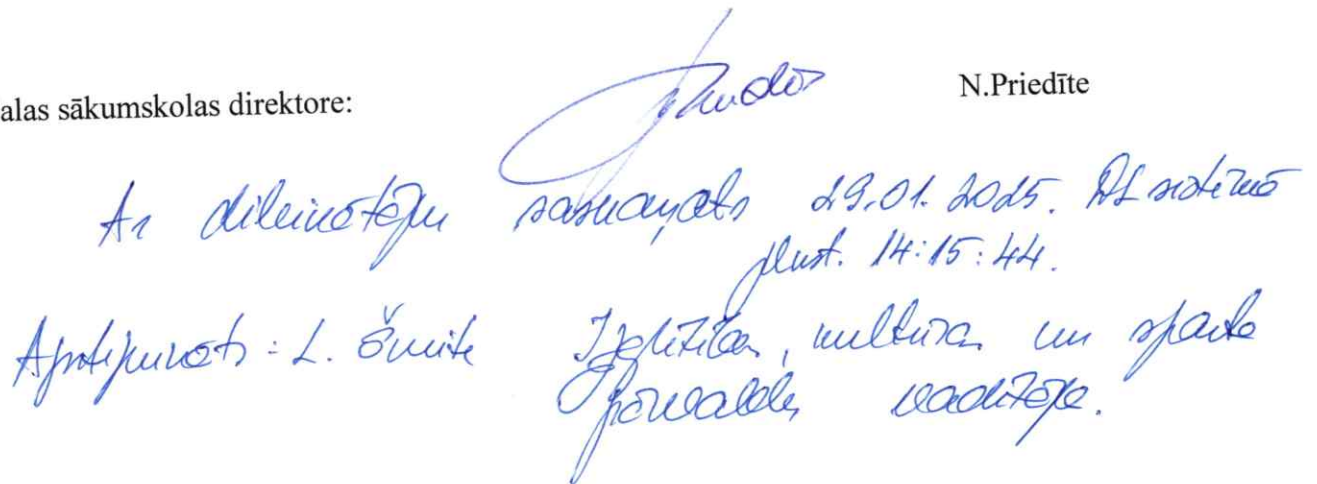 alas sākumskolas direktore: N.Priedīte
Ar dibinātāju saskaņots 29.01.2025. DL sistēmā
plkst. 14:15:44.
Apstiprināts: L. Šmite Izglītības, kultūras un sporta
pārvaldes vadītāja.